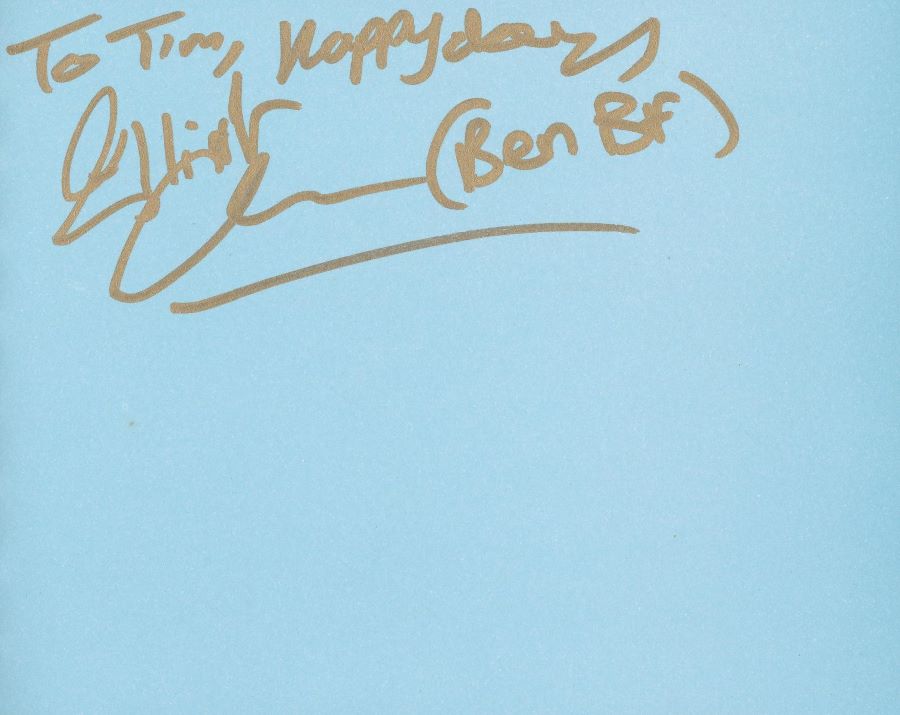 To Tim, Happy days
Elliot (Ben BF)